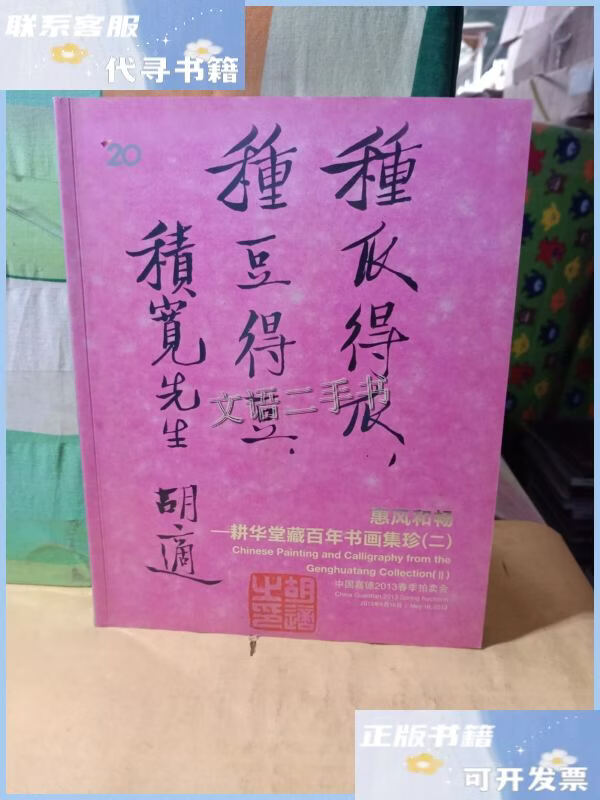 联系客服
代寻书籍
20
種瓜得瓜，
種豆得豆．
積寬先生
胡適
文语二手书
惠风和畅
—耕华堂藏百年书画集珍(二)
Chinese Painting and Calligraphy from the
Genghuatang Collection(Ⅱ)
中国嘉德2013春季拍卖会
China Guardian 2013 Spring Auctions
2013年5月10日 / May 10, 2013
胡適
之印
正版书籍
可开发票